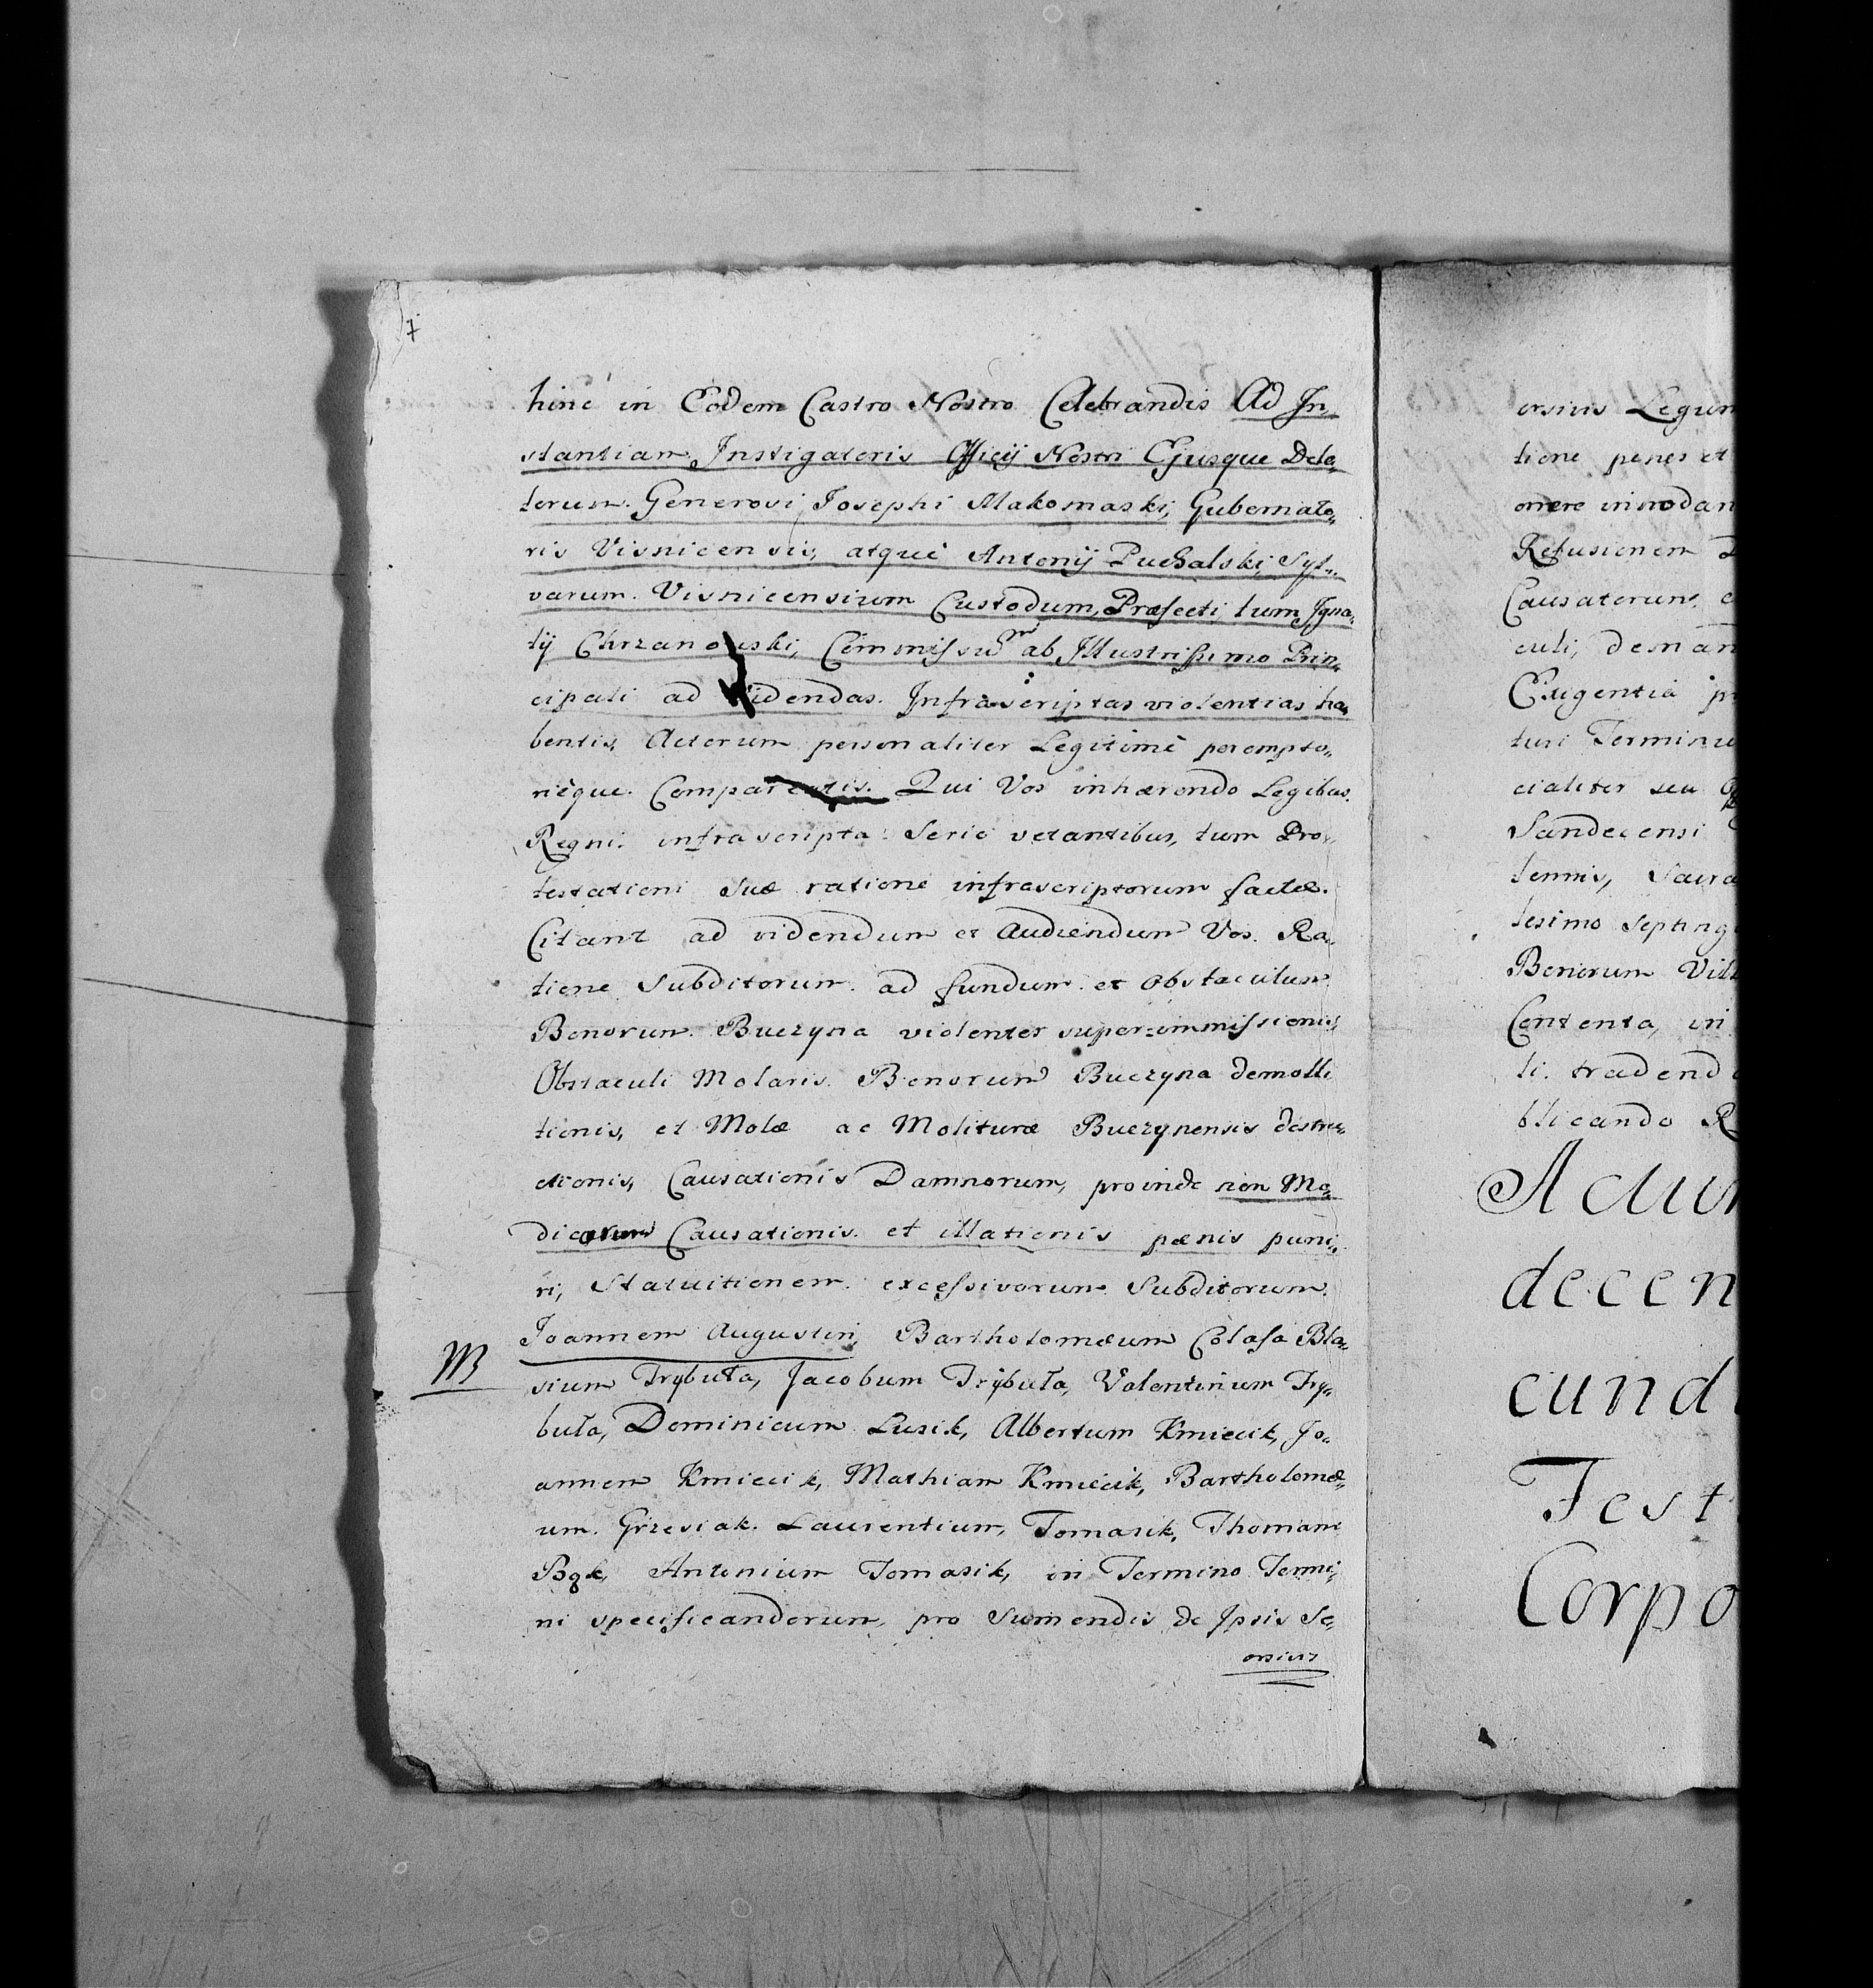 7
hinc in Eodem Castro Nostro Celebrandis Ad In„
stantiam Instigatoris Officij Nostri Ejusque Dela„
torum. Generosi Josephi Makomaski, Gubernato„
ris Visnicensis, atque Antonij Puchalski, Syl„
varum. Visnicensium Custodum, Præfecti, tum Igna„
tij Chrzanowski, Commissum ab Illustrissimo Prin„
cipali ad Videndas. Infrascriptas violentias ha„
bentis, Actorum personaliter Legitimè perempto„
rièque. Comparentis. Qui Vos inhærendo Legibus.
Regni. infrascripta Serie vetantibus, tum Pro„
testationi Suæ ratione infrascriptorum factæ.
Citant ad videndum et Audiendum Vos. Ra„
tione Subditorum. ad fundum et Obstaculum
Bonorum. Buczyna violenter super=immissionis,
Obstaculi Molaris. Bonorum Buczyna demolli
tionis, et Molæ ac Molituræ Buczynensis destru„
ctionis, Causationis Damnorum, proinde non Mo„
dicorum Causationis. et illationis pœnis puni„
ri, Statuitionem. excessivorum Subditorum.
Joannem Augustin, Bartholomæum Colasa Bla„
NB
sium Trybuła, Jacobum Trybuła, Valentinum Try„
buła, Dominicum Lusik, Albertum Kmiecik, Jo„
annem Kmiecik, Mathiam Kmiecik, Bartholomæ„
um. Grzesiak. Laurentium, Tomasik, Thomam
Bąk, Antonium Tomasik, in Termino Termi„
ni specificandorum, pro Sumendis de Ipsis Se„
orsivis
orsivis Legum
tione penes et
onere innodan
Refusionem
Causatorum,
culi, deman
Exigentia
turi Terminu
cialiter seu
Sandecensi
tennis, Sacra
tesimo Septing
Bonorum Vill
Contenta, in
li. tradend
blicando R
Actum
decen
cund
Fest
Corpo